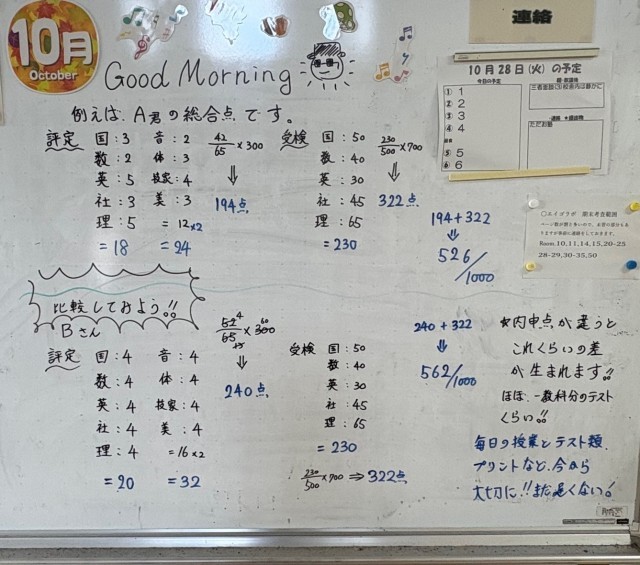 10月
October
Good Morning
連絡
10月28日(火)の予定
① 1
② 2
③ 3
④ 4
⑤ 5
⑥ 6
Room.10,11,14,15,20-25
28-29,30-35,50
例えば、A君の総合点です。
評定 国:3 音:2 42/65×300
数:2 体:3 ⇓
英:5 技家:4 194点
社:3 美:3
理:5 =12×2
=18 =24
受検 国:50 230/500×700
数:40 ⇓
英:30
社:45 322点
理:65
=230
194+322
⇓
526/1000
比較してみよう!!
Bさん
評定 国:4 音:4
数:4 体:4
英:4 技家:4
社:4 美:4
理:4 =16×2
=20 =32
52 4/65×300 60
⇓
240点
受検 国:50
数:40
英:30
社:45
理:65
=230
230/500×700⇒322点
240+322
⇓
562/1000
★内申点が違うと
これくらいの差
が生まれます!!
ほぼ、一教科分のテスト
くらい!!
毎日の授業とテスト類
プリントなど、今から
大切に!!まだ遅くない!